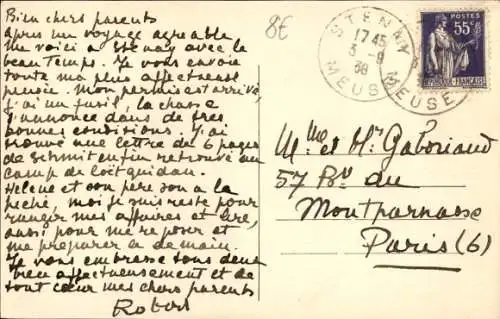 Bien chers parents
Après un voyage agréable
me voici à Stenay avec le
beau temps. Je vous envoie
toute ma plus affectueuse
pensée. Mon permis est arrivé,
j'ai un fusil, la chasse
s'annonce dans de très
bonnes conditions. J'ai
trouvé une lettre de 6 pages
de Schmit enfin retrouvé au
camp de Coëtquidan.
Hélène et son père sont à la
pêche, moi je suis resté pour
ranger mes affaires et lire,
aussi pour me reposer et
me préparer à demain.
Je vous embrasse tous deux
bien affectueusement et de
tout cœur mes chers parents
Robert
8€
STENAY
17 45
3 - 9
38
MEUSE
MEUSE
POSTES
55c
FRANÇAISE
Mme et Mr Gaboriaud
57 Bd du
Montparnasse
Paris (6)